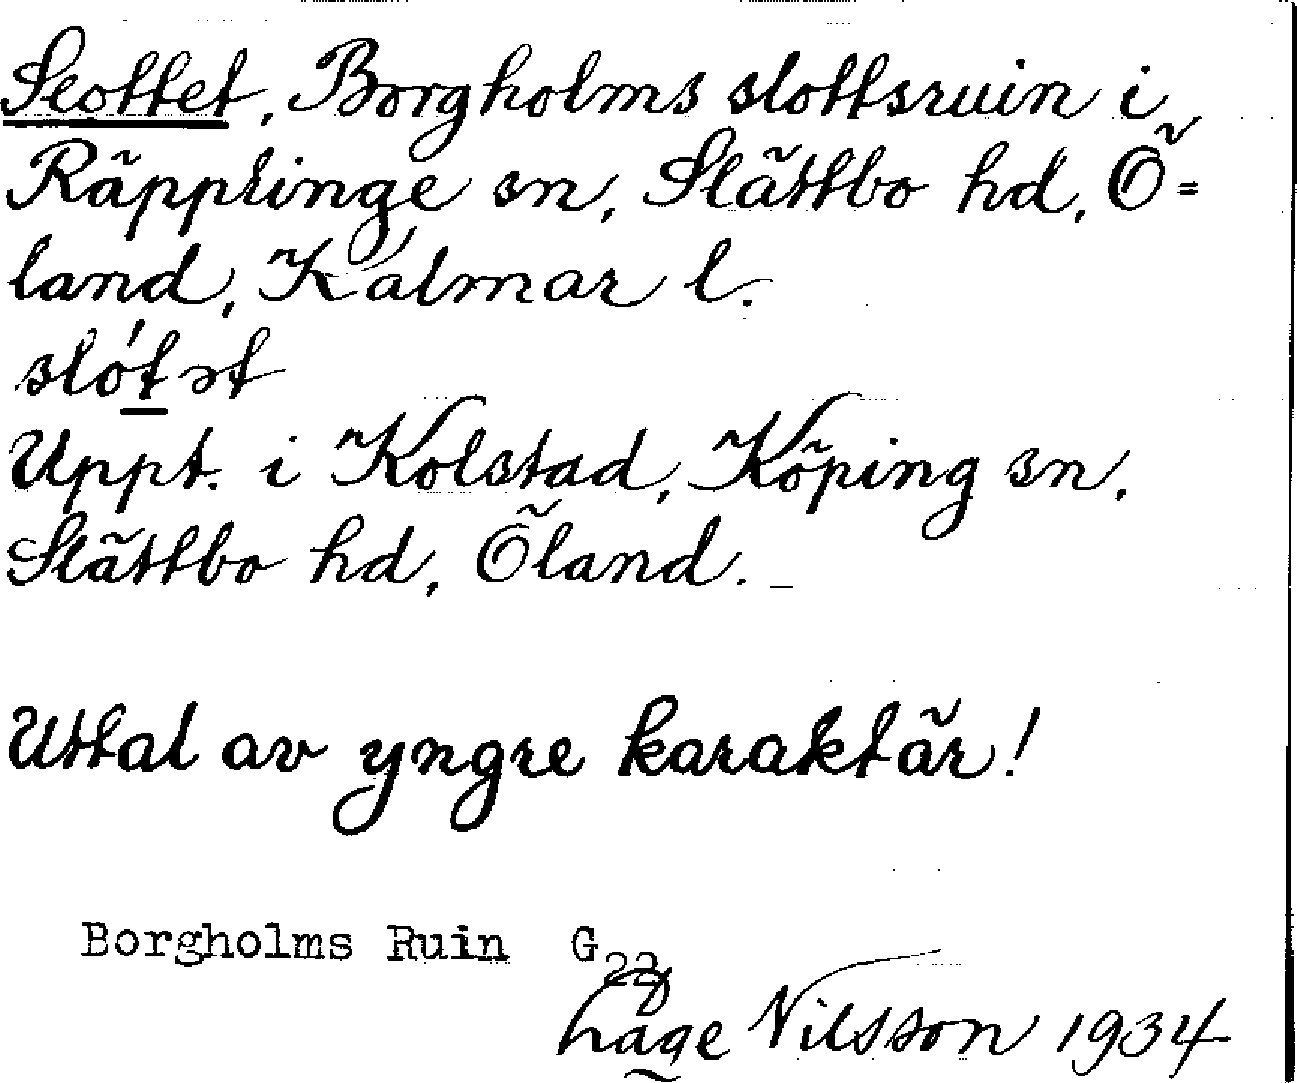 Slottet, Borgholms slottsruin i
Räpplinge sn, Slättbo hd, Ö=
land, Kalmar l.
slót̲ət
Uppt. i Kolstad, Köping sn,
Slättbo hd, Öland. _
Uttal av yngre karaktär!
Borgholms Ruin G22
Låge Nilsson 1934